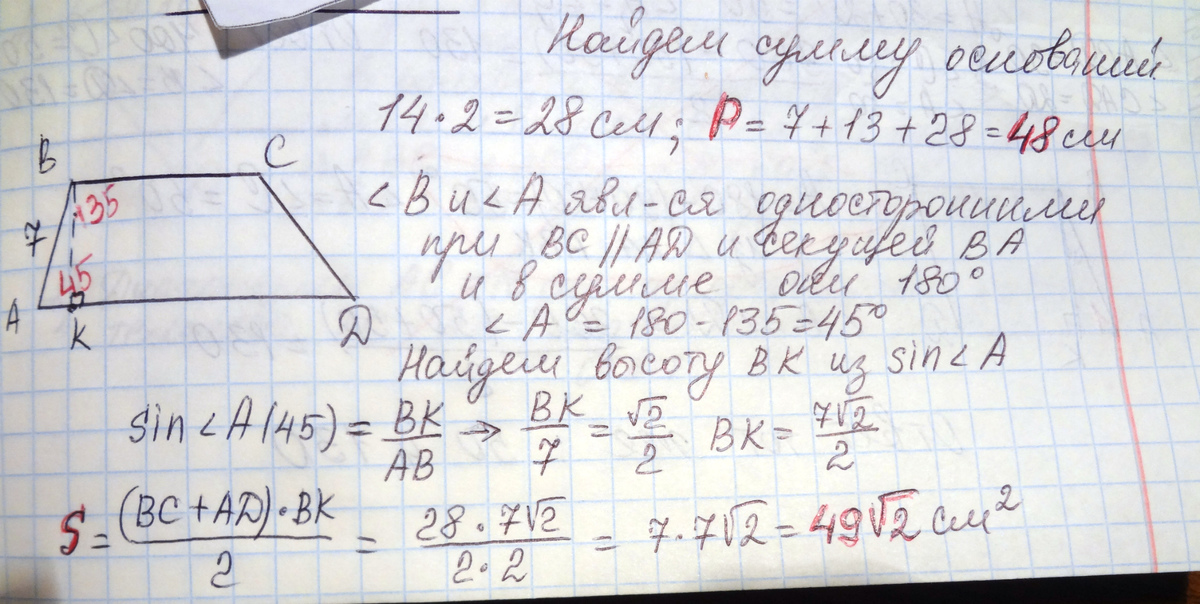 Найдем сумму оснований
14·2=28см; P=7+13+28=48см
B
C
135
7
45
A
K
D
<B и <A явл-ся односторонними
при BC||AD и секущей BA
и в сумме они 180°
<A = 180-135=45°
Найдем высоту BK из sin<A
sin<A(45) = BK/AB → BK/7 = √2/2 BK = 7√2/2
S = (BC+AD)·BK/2 = 28·7√2/2·2 = 7·7√2 = 49√2 см²